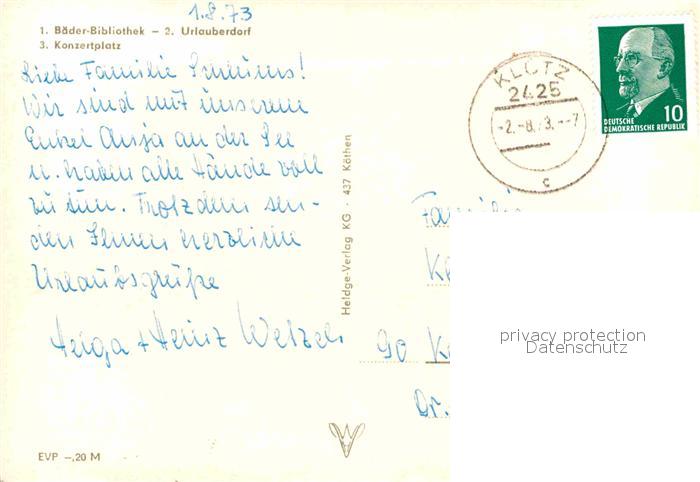 1.8.73
1. Bäder-Bibliothek – 2. Urlauberdorf
3. Konzertplatz
Liebe Familie
Wir sind mit unserem
Enkel Anja an der See
u. haben alle Hände voll
zu tun. Trotzdem sen-
den Ihnen herzliche
Urlaubsgrüße
Helga + Heinz Wetzel
EVP –,20 M
Heldge-Verlag KG · 437 Köthen
KLÜTZ
2425
-2.-8.73.--7
c
DEUTSCHE
DEMOKRATISCHE REPUBLIK
10
Familie
90
Dr.
privacy protection
Datenschutz